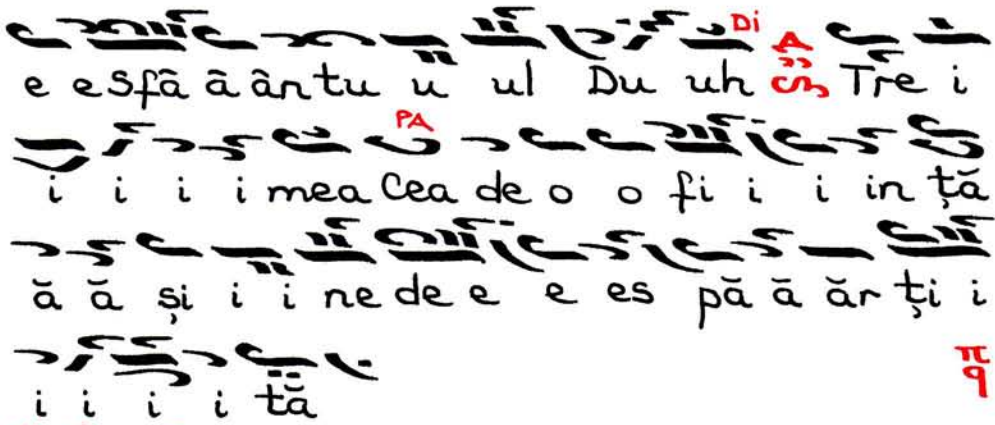 Di A
e e Sfâ â ân tu u ul Du uh Tre i
PA
i i i i mea Cea de o o fi i i in ță
ă ă și i i ne de e e es pă ă ăr ți i
i i i i tă
π q